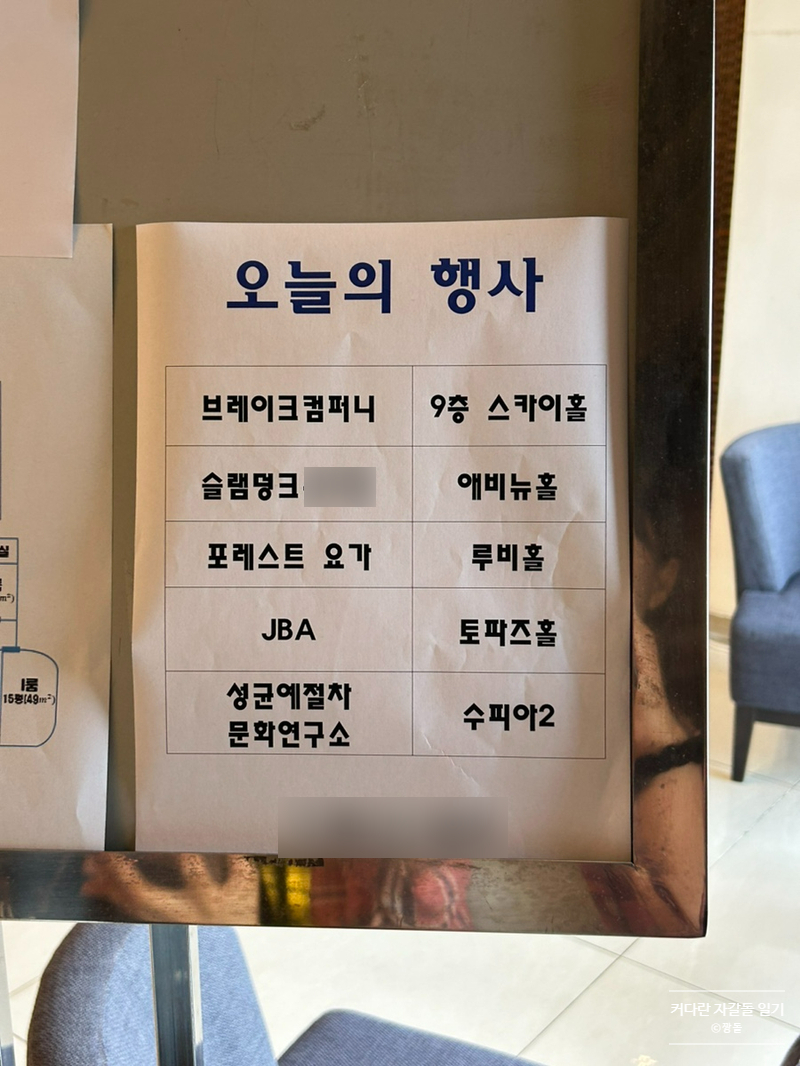 오늘의 행사
브레이크컴퍼니 9층 스카이홀
슬램덩크 애비뉴홀
포레스트 요가 루비홀
JBA 토파즈홀
성균예절차
문화연구소 수피아2
실
m²)
I룸
15평(49m²)
커다란 자갈돌 일기